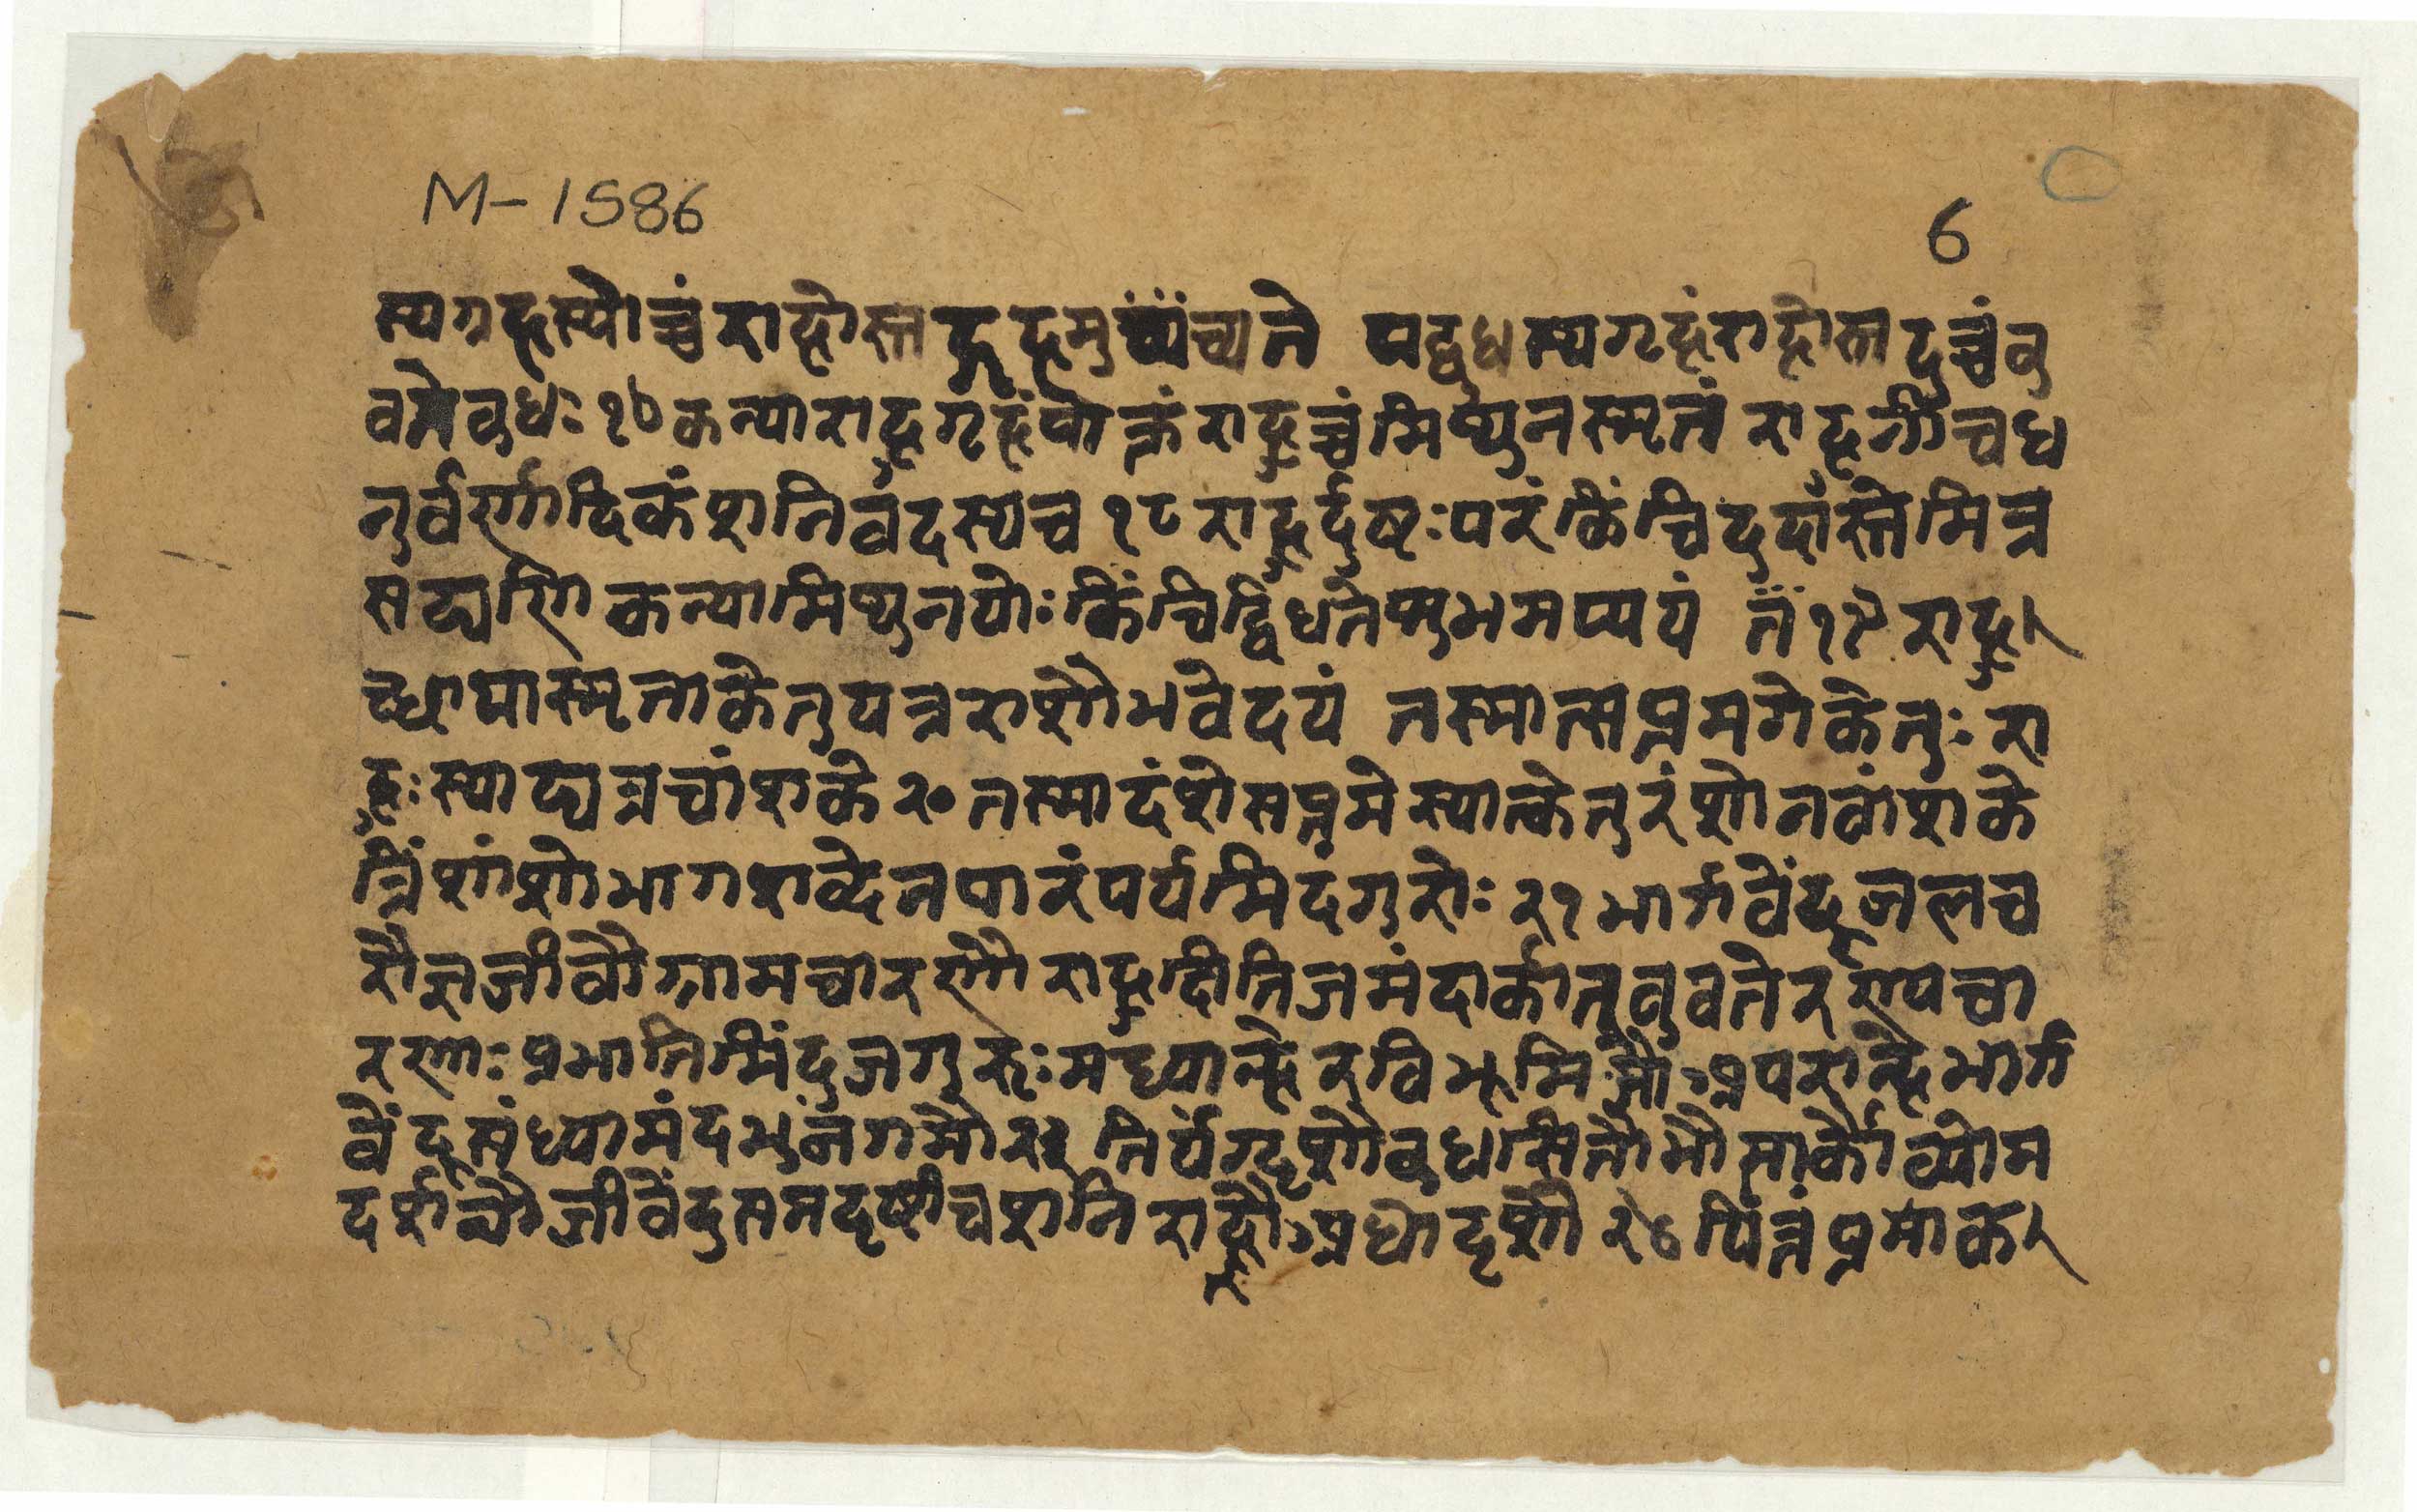 M-1586
6
स्यगृहस्योच्चंराहोस्तद्गृहमुच्यते यद्बुधस्यगृहंराहोस्तदुच्चंब्रु
वतेबुधः १७ कन्याराहुगृहंप्रोक्तंराहूच्चंमिथुनस्मृतं राहुनीचंध
नुर्वर्णादिकंशनिवदस्यच १८ राहुर्दुष्टःपरंकिंचिद्ददास्तेमित्र
सद्मनि कन्यामिथुनयोःकिंचिद्विधत्तेशुभमप्ययं १९ राहु
च्छायास्मृताकेतुयत्रराशौभवेदयं तस्मात्सप्तमगेकेतुः रा
हुःस्याद्यत्रचांशके २० तस्मादंशेसप्तमेस्यात्केतुरंशोनवांशके
त्रिंशांशोभागशब्देनपारंपर्यमिदंगुरोः २१ भार्गवेंदूजलच
रौज्ञजीवौग्रामचारणौ राहुक्षितिजमंदार्कान्ब्रुवतेरण्यचा
रणाः प्रभातमिंदुजगुरूःमध्यान्हेरविभूमिजौ अपरान्हेभार्ग
वेंदूसंध्यामंदभुजंगमौ २३ तिर्यग्दृशौबुधसितौभौमार्कौव्योम
दर्शनौ जीवेंदुसमदृष्टीचशनिराहूअधोदृशौ २४ पित्तंप्रभाकर